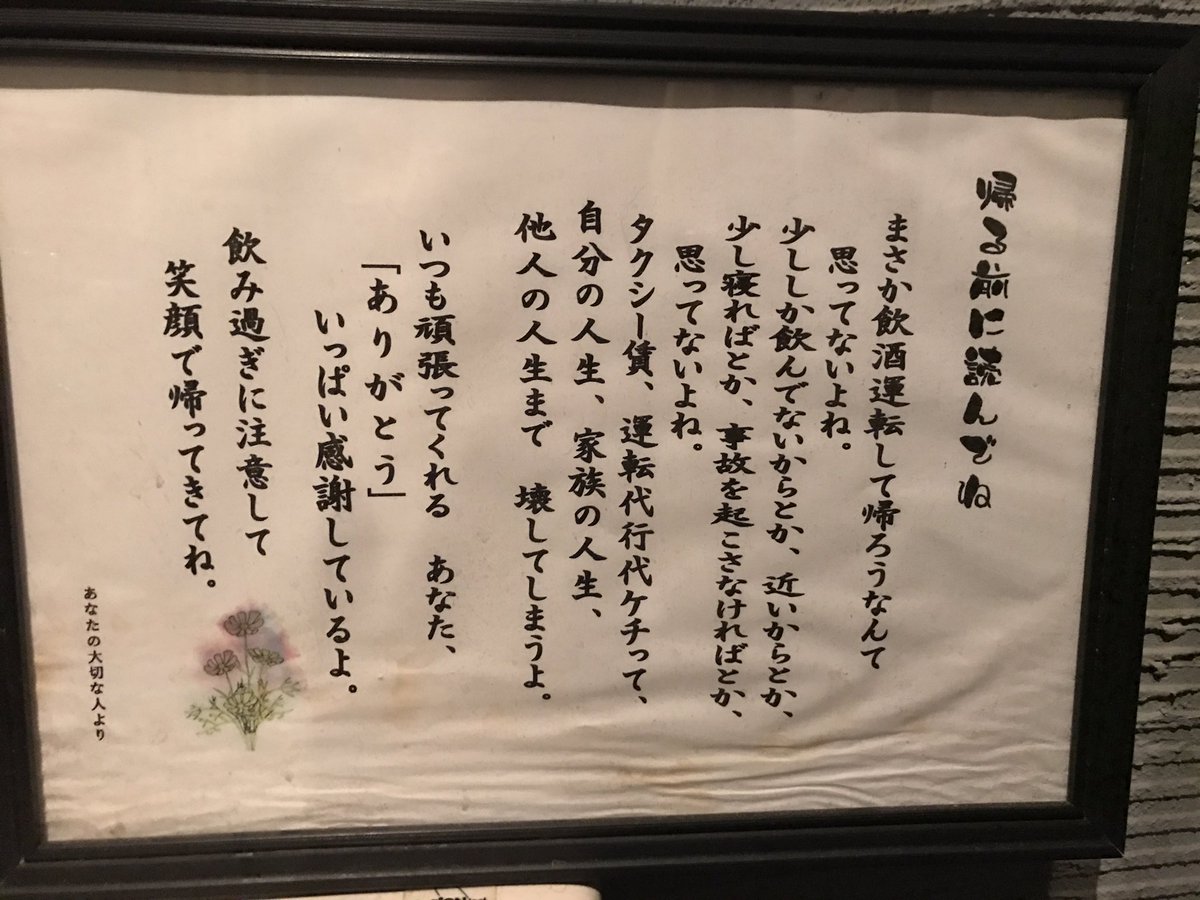 帰る前に読んでね
まさか飲酒運転して帰ろうなんて
思ってないよね。
少ししか飲んでないからとか、近いからとか、
少し寝ればとか、事故を起こさなければとか、
思ってないよね。
タクシー賃、運転代行代ケチって、
自分の人生、家族の人生、
他人の人生まで　壊してしまうよ。
いつも頑張ってくれる　あなた、
「ありがとう」
いっぱい感謝しているよ。
飲み過ぎに注意して
笑顔で帰ってきてね。
あなたの大切な人より